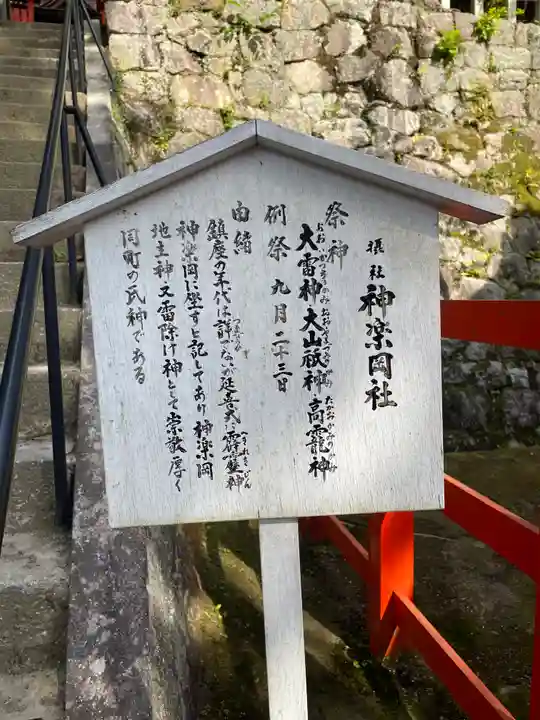 摂社 神楽岡社
祭神 大雷神 大山祇神 高龗神
例祭 九月二十三日
由緒
鎮座の年代は詳でないが延喜式に霹靂神
神楽岡に坐すと記してあり神楽岡
地主神又雷除け神として崇敬厚く
同町の氏神である